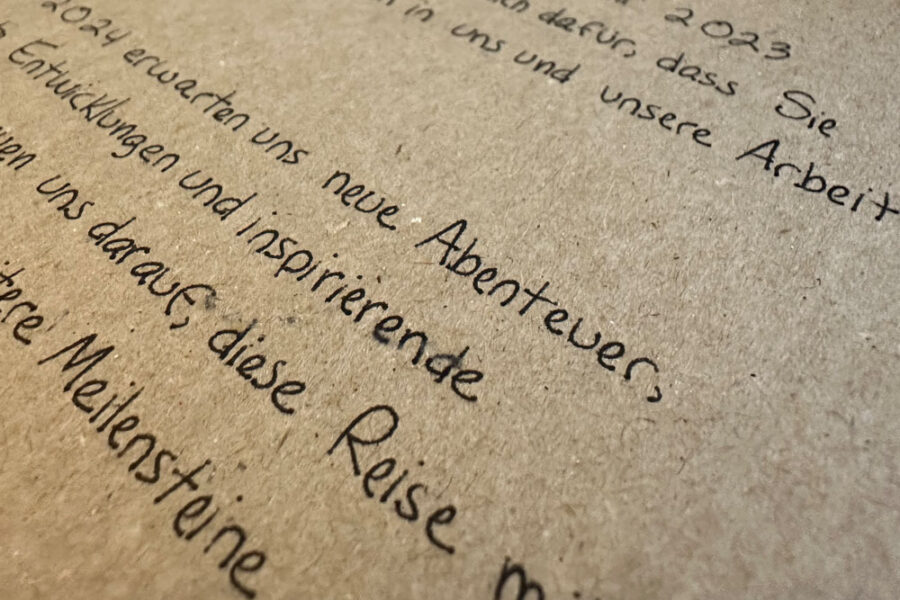 2023
dafür, dass Sie
in uns und unsere Arbeit
2024 erwarten uns neue Abenteuer,
Entwicklungen und inspirierende
uns darauf, diese Reise
Meilensteine